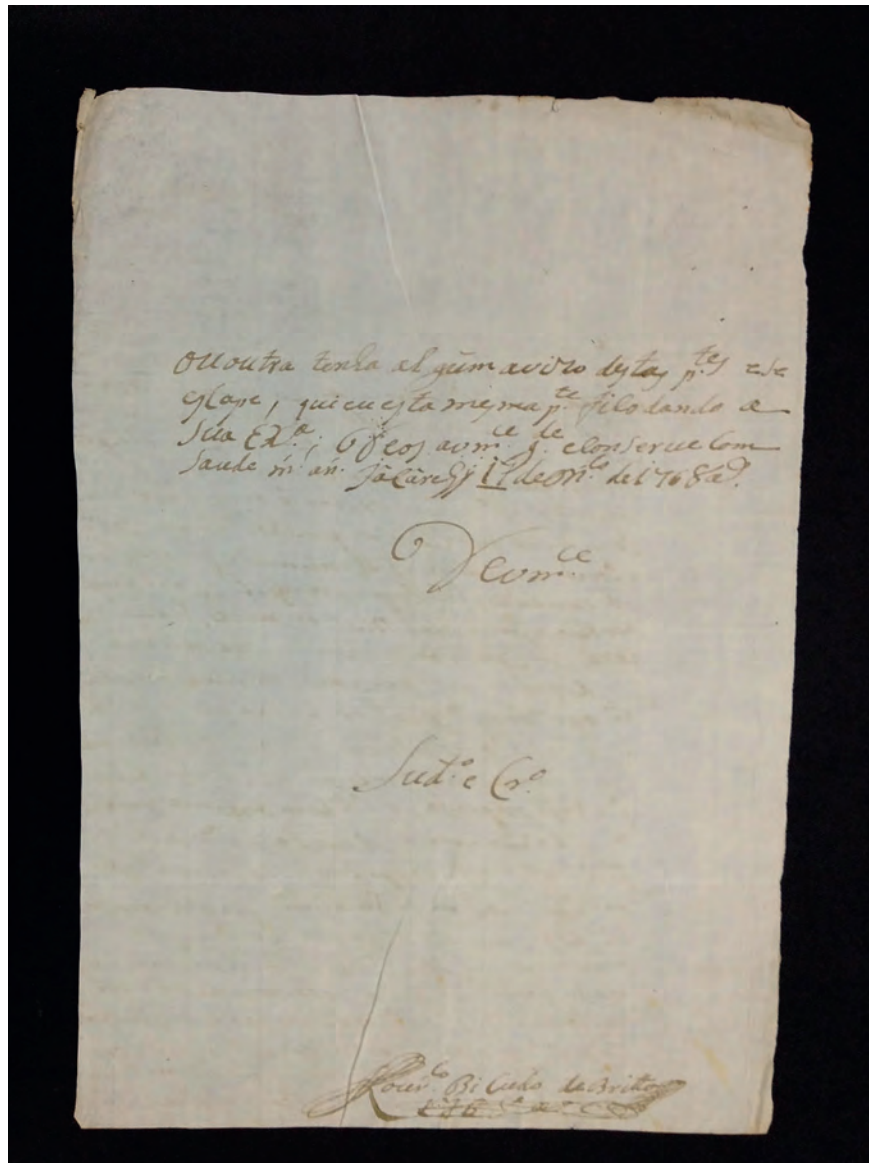 ou outra tenha algũm avizo destas p.tes e se
escape, que eu esta mesma p.te fico dando a
Sua Ex.a; D.eos a vm.ce g.de e Conserve Com
Saude m. an. Jacarehÿ 17 de 1768 a.
De vm.ce
Sud.o e Cr.o
Lour.co Bi Cudo de Britto